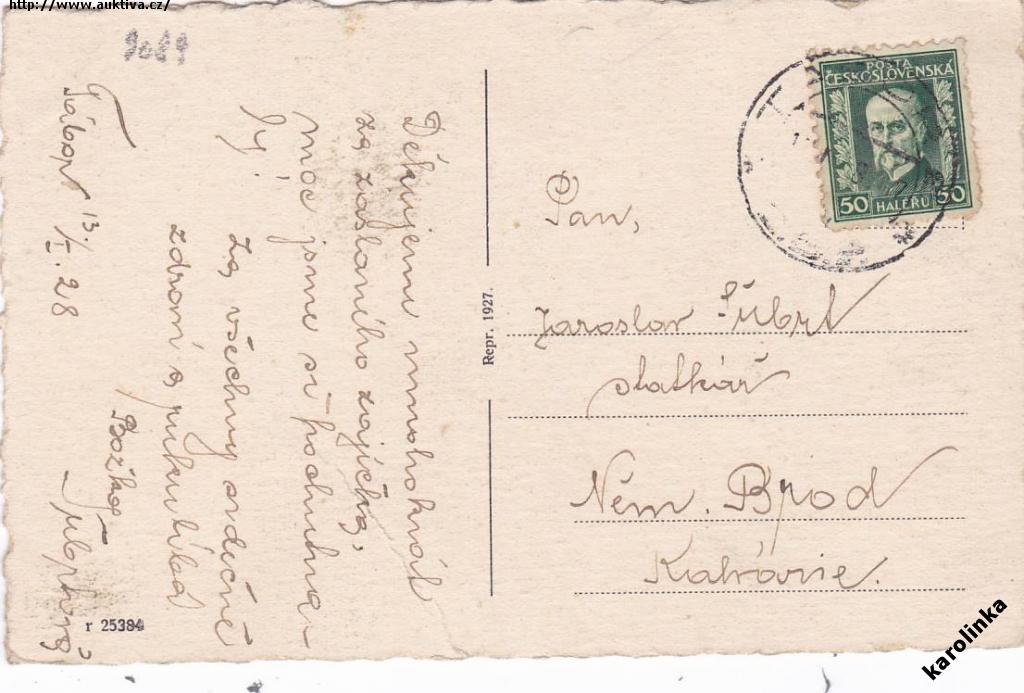 http://www.auktiva.cz/
Tábor 13./I. 28
Děkujeme mnohokrát
za zaslaního zajíčka,
moc jsme si pochutna-
ly.
Za všechny srdečně
zdraví a
Božka
POŠTA
ČESKOSLOVENSKÁ
50 HALÉŘŮ 50
Pan,
Jaroslav Šubrt
statkář
Něm. Brod
Kalvárie.
Repr. 1927.
r 25384
karolinka